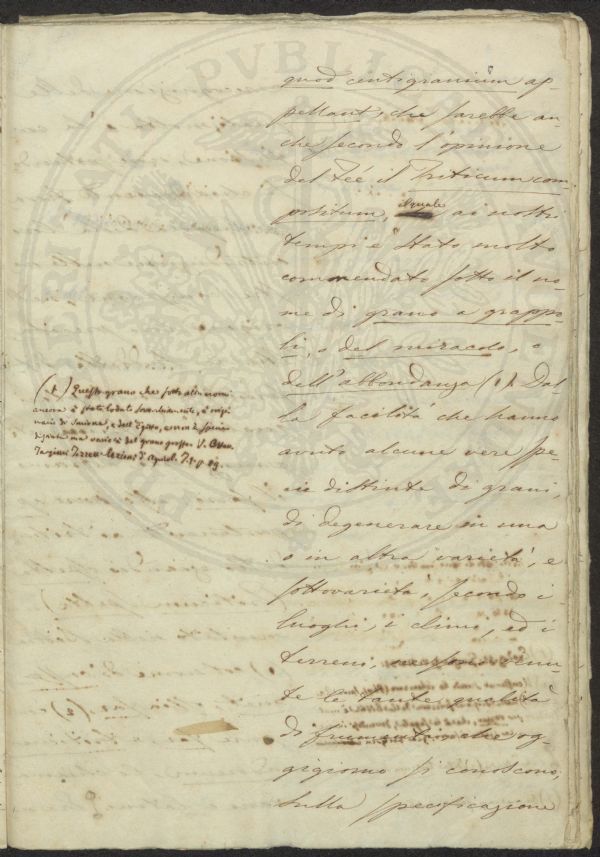 quod centigranium ap-
pellant, che sarebbe an-
che secondo l'opinione
del Feé il Triticum com-
positum, il quale ai nostri
tempi è stato molto
commendato sotto il no-
me di grano a grappo-
li, o del miracolo, o
dell'abbondanza (1). Dal-
la facilità che hanno
avuto alcune vere spe-
cie distinte di grani,
di degenerare in una
o in altra varietà, e
sottovarietà, secondo i
luoghi, i climi, ed i
terreni, ne sono venu-
te le tante qualità
di frumento che og-
gigiorno si conoscono.
Sulla specificazione
(1) Questo grano che sotto altri nomi
ancora è stato lodato sommamente, è origi-
nario di Smirne, e dell'Egitto, e non è specie
distinta ma varietà del grano grosso V. Ottav.
Targioni Tozzetti Lezioni d'Agricol. T. p. 89.